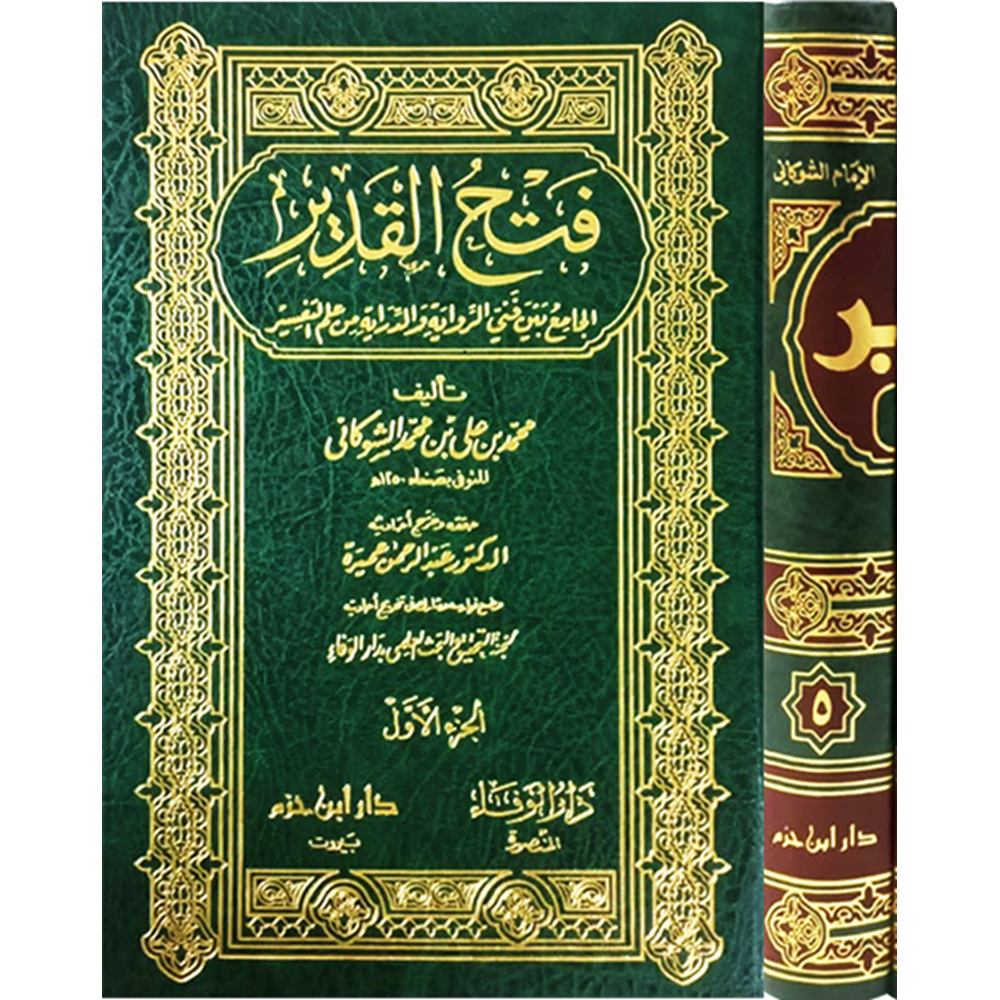 فَتْحُ القَدِيْرِ
الجَامِعُ بَيْنَ فَنَّيِ الرِّوَايَةِ وَالدِّرَايَةِ مِنْ عِلْمِ التَّفْسِيْرِ
تأليف
محمد بن علي بن محمد الشوكاني
المتوفى بصنعاء ١٢٥٠هـ
حققه وخرج أحاديثه
الدكتور عبد الرحمن عميرة
وضع فهارسه وشارك في تخريج أحاديثه
لجنة التحقيق والبحث العلمي بدار الوفاء
الجزء الأوّل
دار الوفاء
المنصورة
دار ابن حزم
بيروت
الإمام الشوكاني
٥
دار ابن حزم